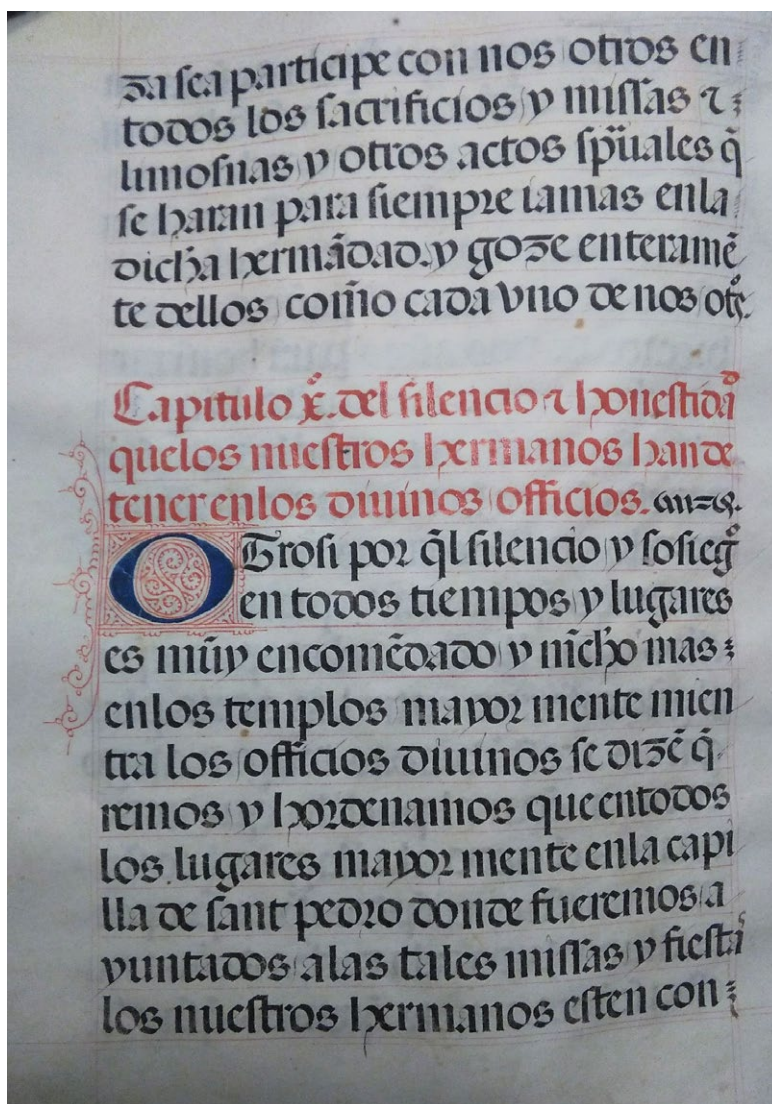 za sea participe con nos otros en
todos los sacrificios y missas ⁊
limosnas y otros actos sp̃uales q̃
se haran para siempre iamas enla
dicha hermãdad. y goze enteramẽ
te dellos com̃o cada vno de nos otͦs.
Capitulo xͦ. del silencio ⁊ honestidaᵈ
quelos nuestros hermanos hande
tener enlos diuinos officios.
OTrosi por q̃l silencio y sosiegͦ
en todos tiempos y lugares
es mũy encomẽdado y mc̃ho mas
enlos templos mayor mente mien
tra los officios diuinos se dizẽ q̃
remos y hordenamos que entodos
los lugares mayor mente enla capi
lla de sant pedro donde fueremos a
yuntados alas tales missas y fiestaˢ
los nuestros hermanos esten con